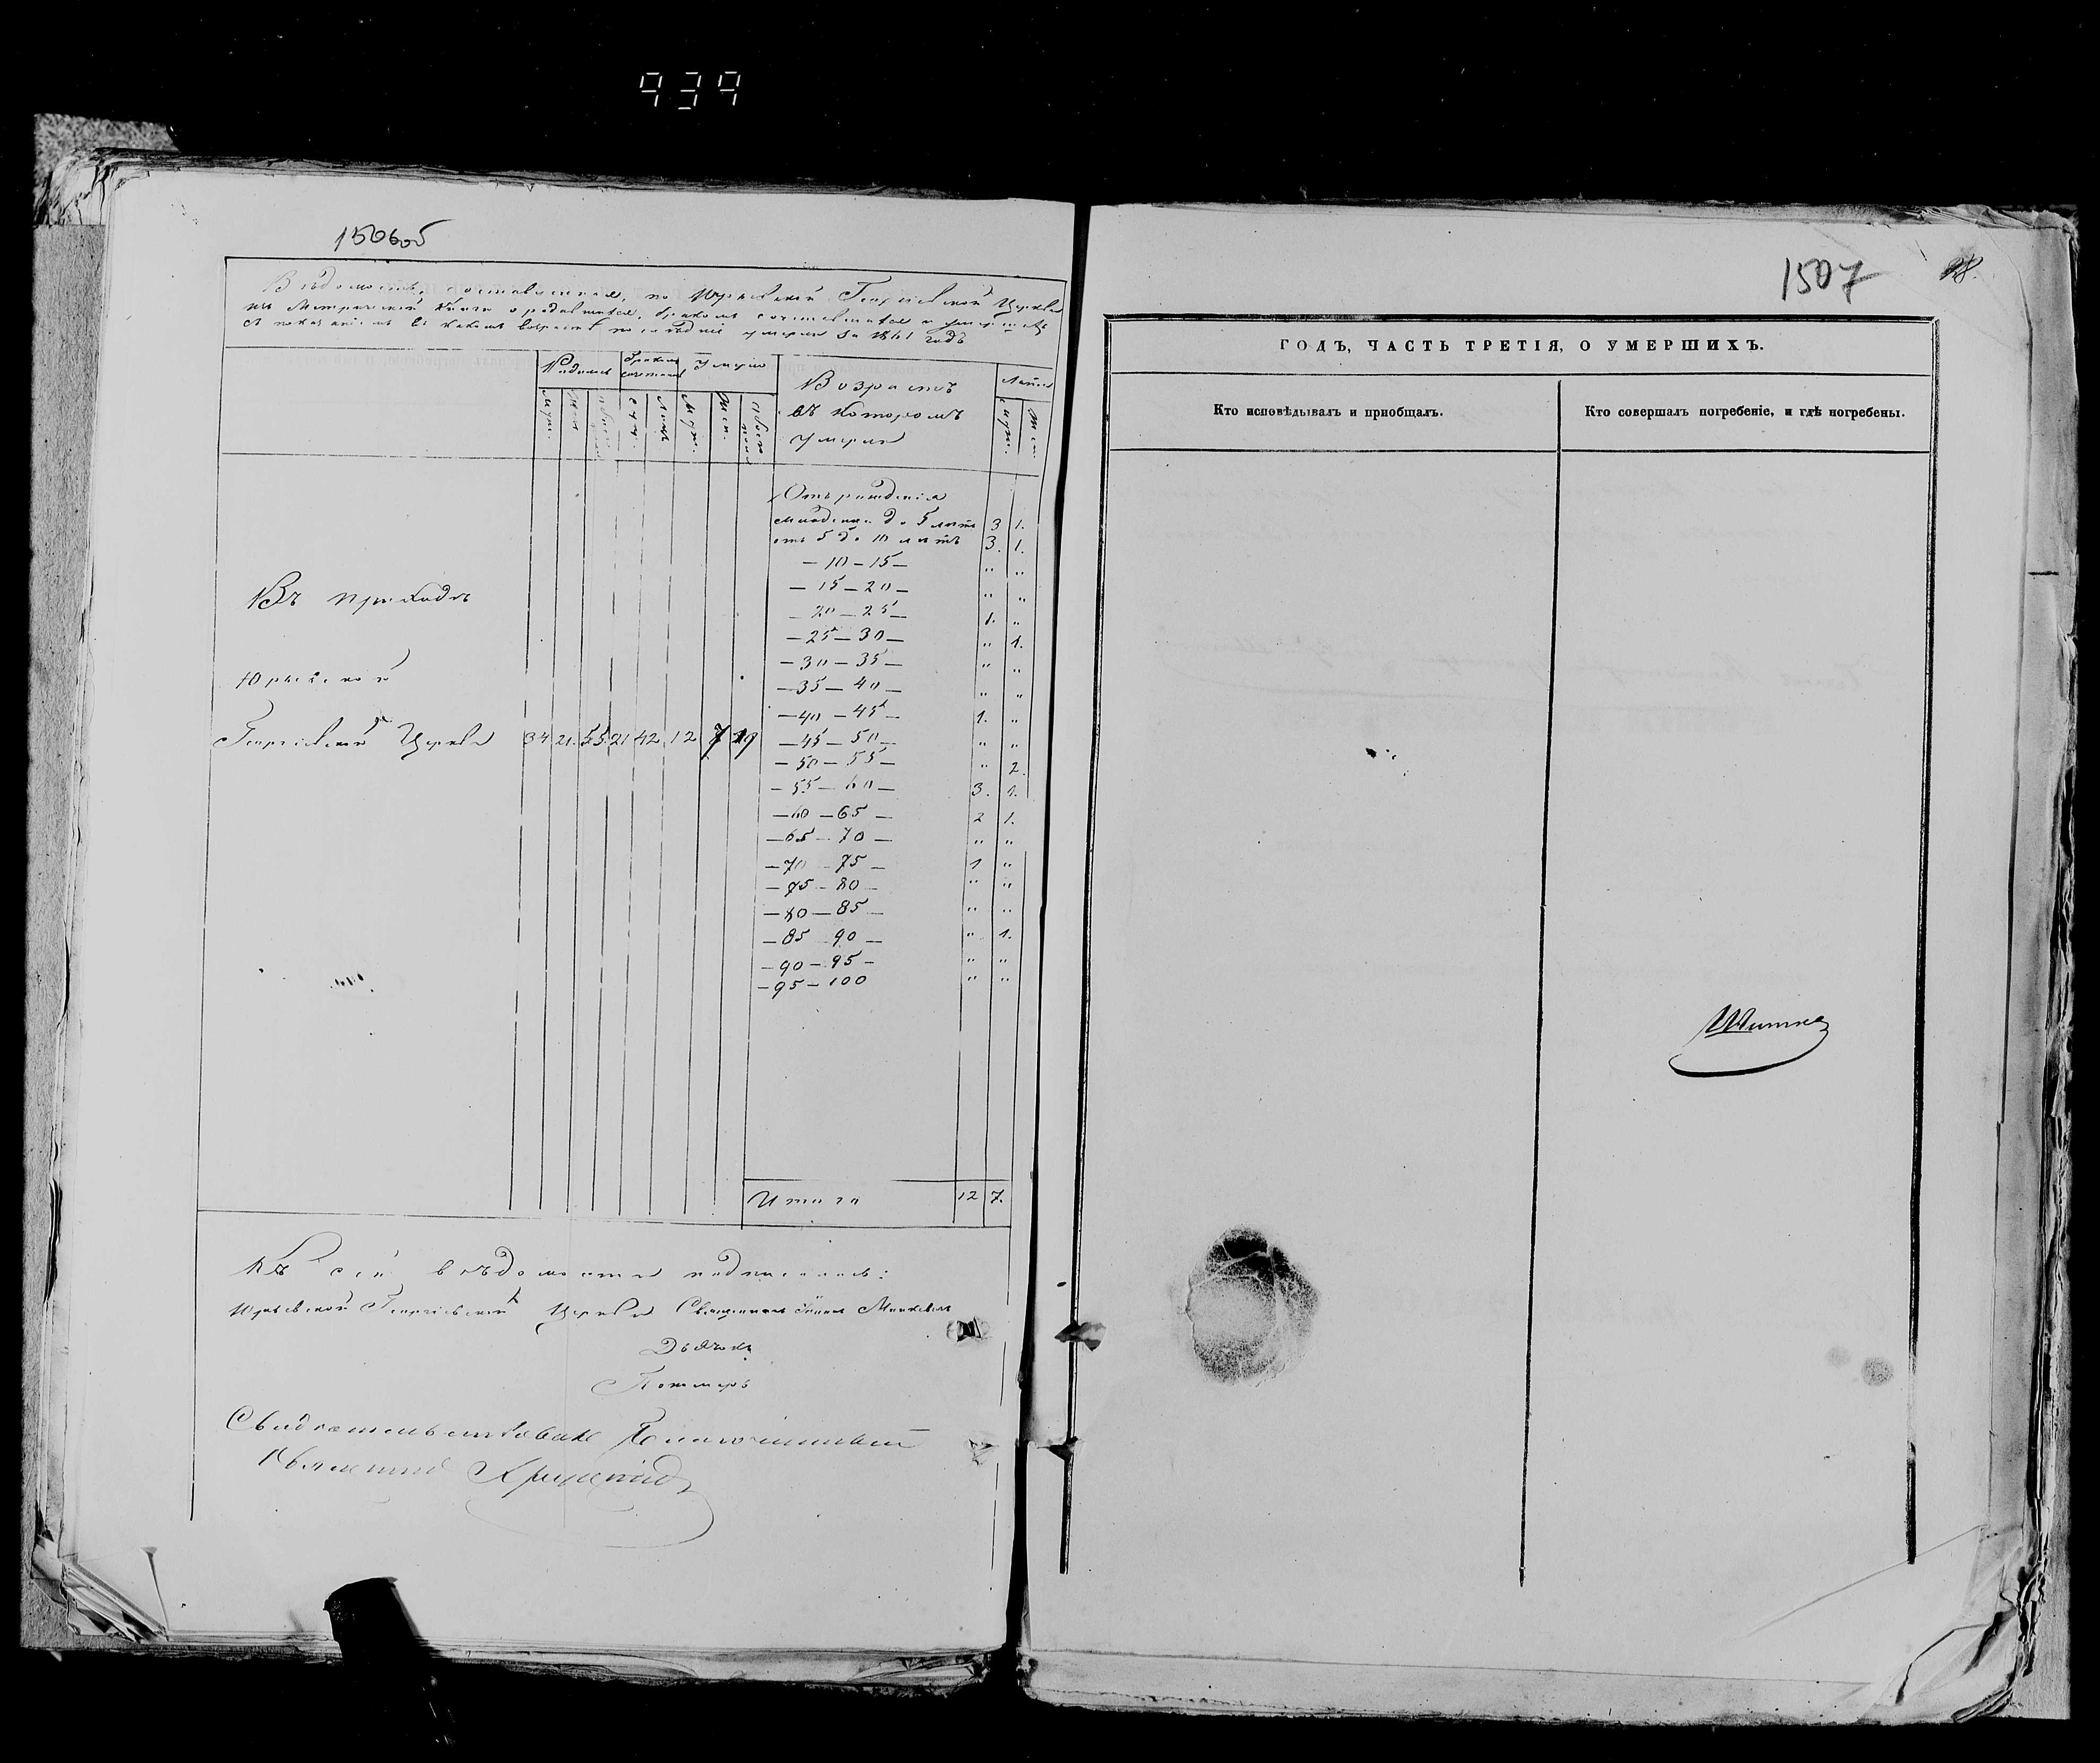 939
1506об
Вѣдомость, составленная, по Юрьевской Георгіевской Церкви
изъ Метрической Книги о родившихся, бракомъ сочетавшихся и умершихъ
съ показаніемъ въ какомъ возрастѣ послѣдніе умерли за 1861 годъ
Родилось Бракомъ сочетались Умерло Возрастъ въ которомъ умерли Лѣта
Муж. Жен. обоего Муж. Жен. обоего пола Муж. Жен.
Отъ рожденія
младенцы до 5 лѣтъ 3 1.
отъ 5 до 10 лѣтъ 3. 1.
— 10 — 15 — „ „
— 15 — 20 — „ „
— 20 — 25 — 1. „
— 25 — 30 — „ 1.
— 30 — 35 — „ „
— 35 — 40 — „ „
— 40 — 45 — 1. „
— 45 — 50 — „ „
— 50 — 55 — „ 2.
— 55 — 60 — 3. 1.
— 60 — 65 — 2 1.
— 65 — 70 — „ „
— 70 — 75 — 1 „
— 75 — 80 — „ „
— 80 — 85 — „ „
— 85 — 90 — „ 1.
— 90 — 95 — „ „
— 95 — 100 „ „
Въ приходѣ
Юрьевской
Георгіевской Церкви 34 21. 55. 21 42 12 7 19
Итого 12 7.
Къ сей вѣдомости подписались:
Юрьевской Георгіевской Церкви Священникъ Іоаннъ
Дьячокъ
Пономарь
Свидѣтельствовалъ Благочинный
1507
28.
ГОДЪ, ЧАСТЬ ТРЕТІЯ, О УМЕРШИХЪ.
Кто исповѣдывалъ и приобщалъ.
Кто совершалъ погребеніе, и гдѣ погребены.